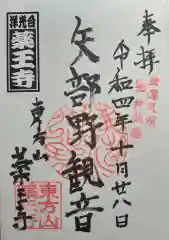 奉拝
令和四年十月廿八日
矢部野観音
東方山
薬王寺
洋光台
薬王寺
東方山